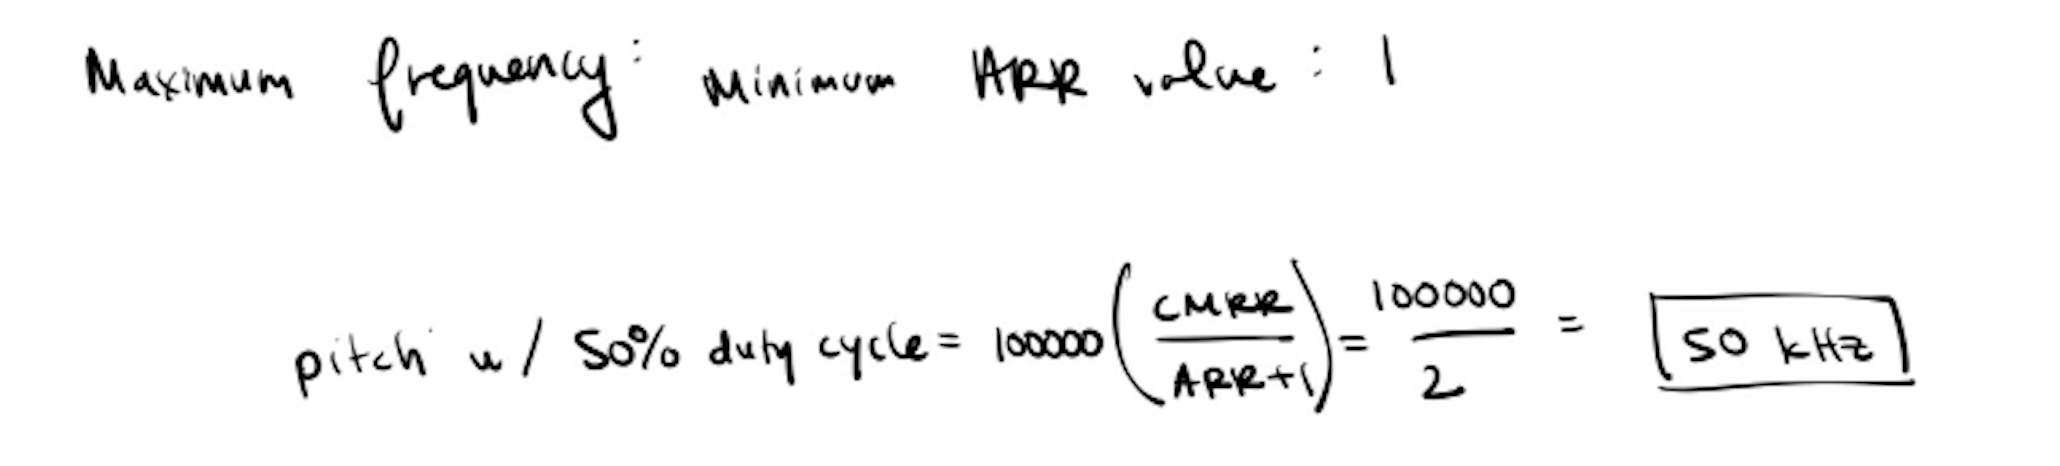 Maximum frequency: Minimum ARR value: 1
pitch w/ 50% duty cycle = 100000 (CMRR / ARR+1) = 100000 / 2 = 50 kHz